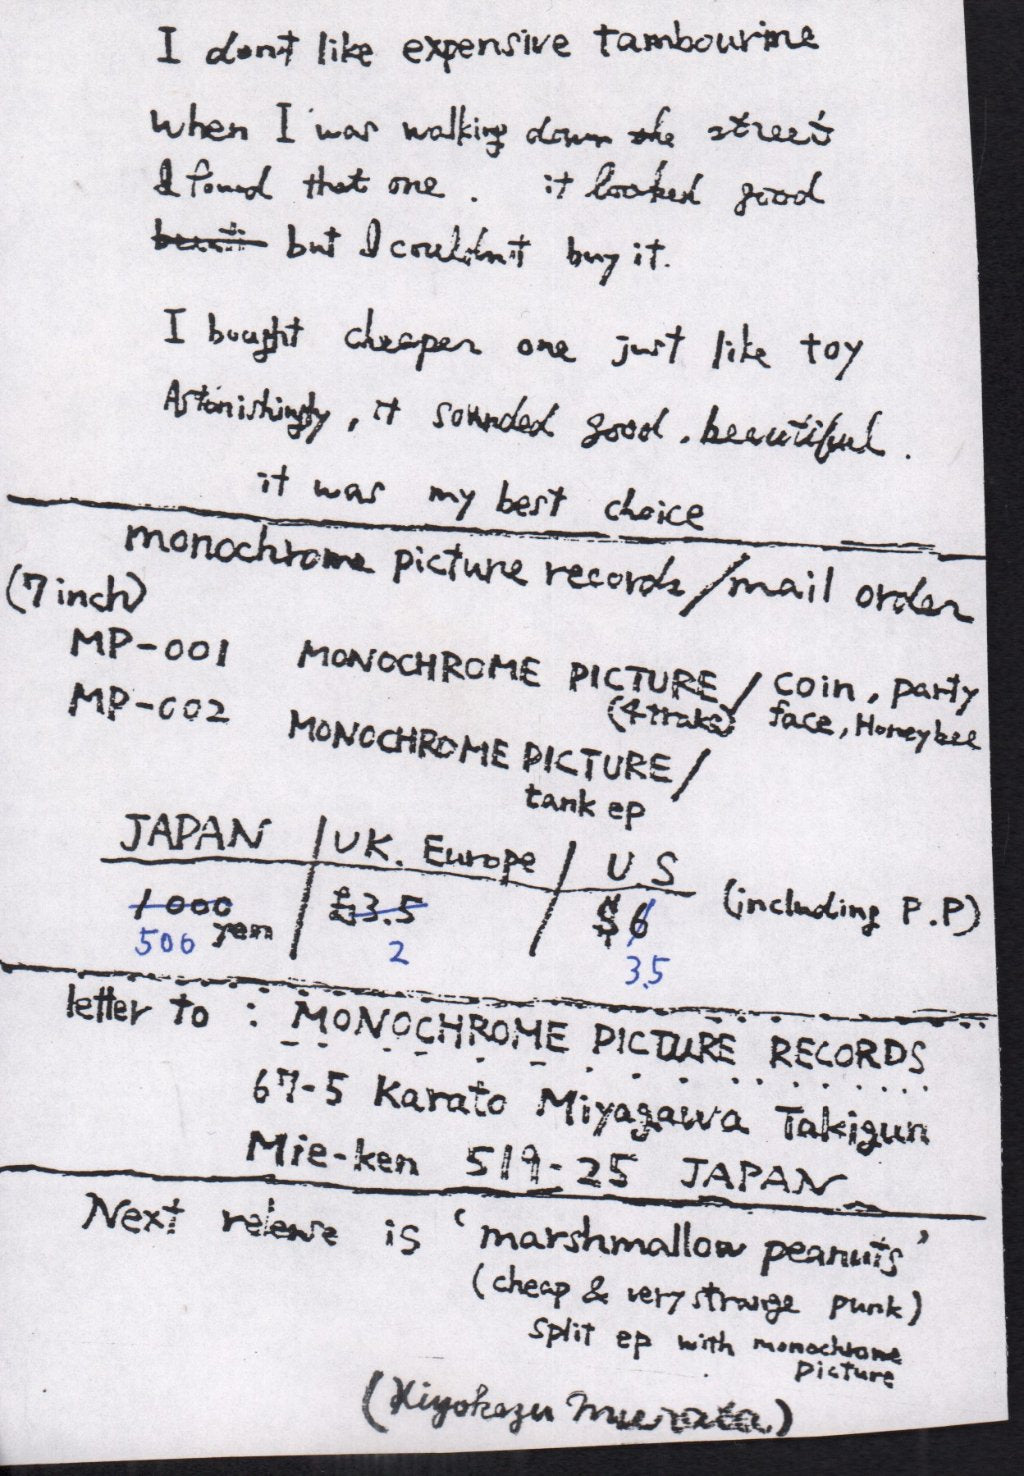 I don't like expensive tambourine
when I was walking down the street
I found that one. it looked good
but I couldn't buy it.
I bought cheaper one just like toy
Astonishingly, it sounded good. beautiful.
it was my best choice
monochrome picture records/mail order
(7 inch)
MP-001 MONOCHROME PICTURE / coin, party
(4 traks) face, Honeybee
MP-002 MONOCHROME PICTURE/
tank ep
JAPAN / UK. Europe / US
1000 yen £3.5 $6 (including P.P)
500 2 3.5
letter to : MONOCHROME PICTURE RECORDS
67-5 Karato Miyagawa Takigun
Mie-ken 519-25 JAPAN
Next release is 'marshmallow peanuts'
(cheap & very strange punk)
split ep with monochrome
picture
(Kiyokazu Murata)